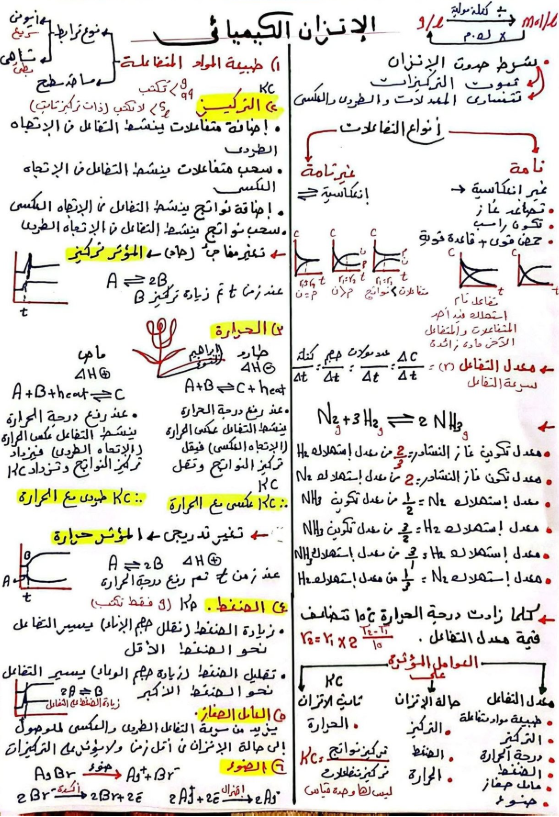 الإتزان الكيميائى
g/L ÷ كتلة مولية → mol/L
• شروط حدوث الإتزان
ثبوت التركيزات
تتساوى المعدلات الطردى والعكسى
أنواع التفاعلات
تامة
غير انعكاسية →
• تصاعد غاز
• تكون راسب
• حمض قوى + قاعدة قوية
غير تامة
إنعكاسية ⇌
تفاعل تام
← معدل التفاعل (r) =
سرعة التفاعل
ΔC/Δt = عدد مولات/Δt = حجم/Δt = كتلة/Δt
N₂g + 3H₂g ⇌ 2NH₃g
• معدل تكوين غاز النشادر = 2/3 من معدل إستهلاك H₂
• معدل تكون غاز النشادر = 2 من معدل إستهلاك N₂
• معدل إستهلاك N₂ = 1/2 من معدل تكوين NH₃
• معدل إستهلاك H₂ = 3/2 من معدل تكوين NH₃
• معدل إستهلاك N₂ = 1/3 من معدل إستهلاك H₂
← كلما زادت درجة الحرارة 10°C تتضاعف
قيمة معدل التفاعل .
العوامل المؤثرة
على
معدل التفاعل
• طبيعة مواد متفاعلة
• التركيز
• درجة الحرارة
• الضغط
• عامل حفاز
• ضوء
حالة الإتزان
• التركيز
• الضغط
• الحرارة
KC
ثابت الإتزان
• الحرارة
KC = تركيز نواتج / تركيز متفاعلات
ليس لها وحدة قياس
١) طبيعة المواد المتفاعلة
نوع ترابط
أيونى
سريع
تساهمى
بطئ
مساحة سطح
٢) التركيز
KC
• إضافة متفاعلات ينشط التفاعل فى الإتجاه
الطردى
• سحب متفاعلات ينشط التفاعل فى الإتجاه
العكسى
• إضافة نواتج ينشط التفاعل فى الإتجاه العكسى
• سحب نواتج ينشط التفاعل فى الإتجاه الطردى
← تغير مفاجئ (حاد) ← المؤثر تركيز
A ⇌ 2B
عند زمن t تم زيادة تركيز B
٣) الحرارة
طارد
ΔH ⊖
A+B ⇌ C + heat
• عند رفع درجة الحرارة
ينشط التفاعل عكسى الحرارة
(الإتجاه العكسى) فيقل
تركيز النواتج وتقل
KC
∴ KC عكسى مع الحرارة
ماص
ΔH ⊕
A+B+heat ⇌ C
• عند رفع درجة الحرارة
ينشط التفاعل عكس الحرارة
(الإتجاه الطردى) فيزداد
تركيز النواتج وتزداد KC
∴ KC طردى مع الحرارة
← تغير تدريجى ← المؤثر حرارة
A ⇌ 2B ΔH ⊕
عند زمن t تم رفع درجة الحرارة
٤) الضغط . Kp (g فقط تكتب)
• زيادة الضغط (تقلل حجم الإناء) يسير التفاعل
نحو الضغط الأقل
• تقليل الضغط (زيادة حجم الوعاء) يسير التفاعل
نحو الضغط الأكبر
2A ⇌ B
زيادة الضغط على التفاعل
٥) العامل الحفاز
يزيد من سرعة التفاعل الطردى والعكسى للوصول
إلى حالة الإتزان فى أقل زمن ولا يؤثر على التركيزات
٦) الضوء
AgBr ضوء→ Ag⁺ + Br⁻
2Br⁻ أكسدة→ 2Br + 2e⁻
2Ag⁺ + 2e⁻ إختزال→ 2Ag